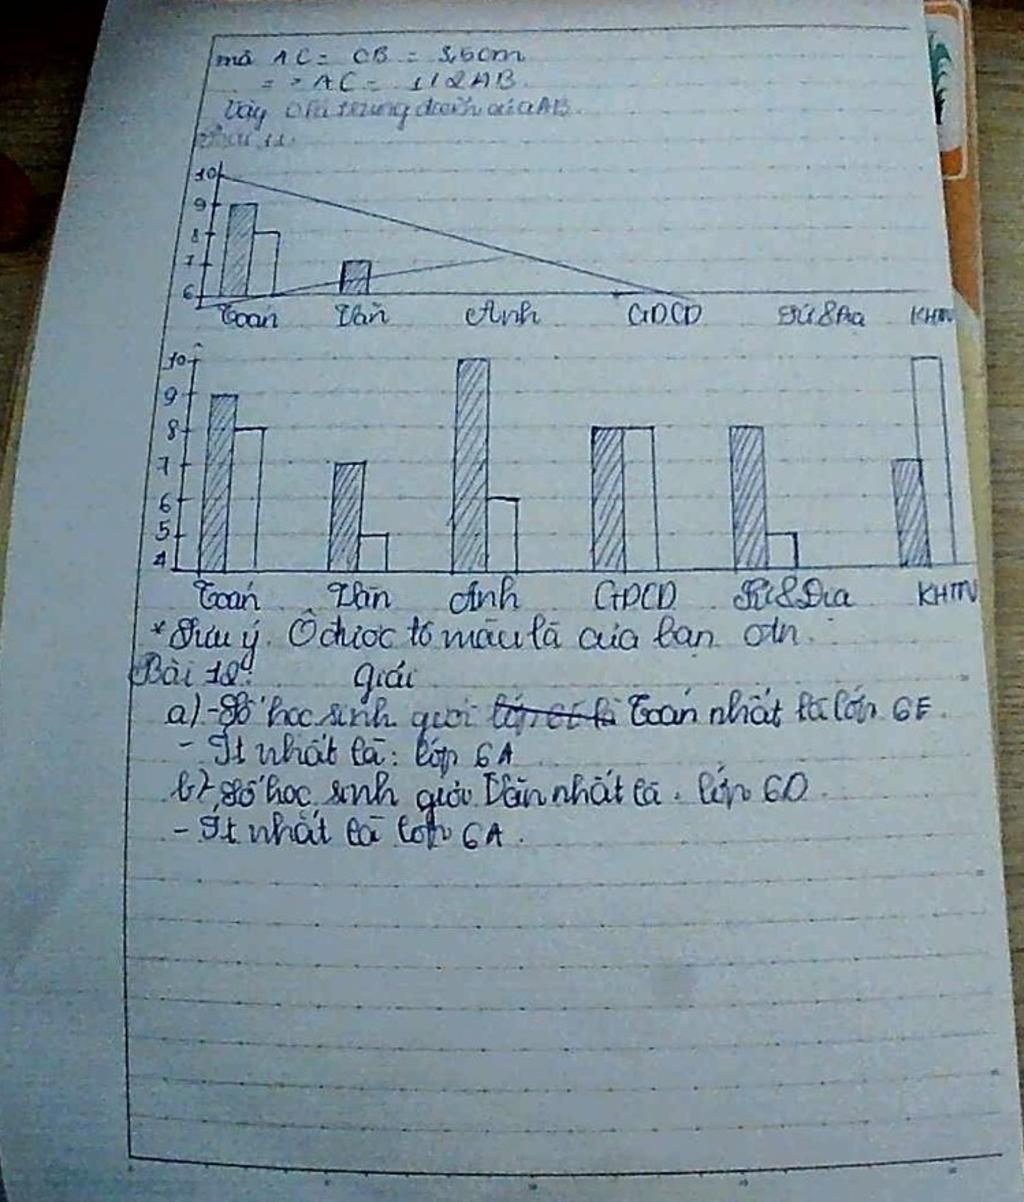 mà AC = CB = 3,5cm
=> AC = 1/2AB
Vậy C là trung điểm của AB.
Bài 11.
10
9
8
7
6
Toán Văn Anh GDCD Sử&Địa KHTN
10
9
8
7
6
5
4
Toán Văn Anh GDCD Sử&Địa KHTN
* Lưu ý. Ô được tô màu là của bạn An.
Bài 12: giải
a) - Số học sinh giỏi Toán nhất là lớp 6E.
- Ít nhất là: lớp 6A
b) Số học sinh giỏi Văn nhất là. lớp 6D.
- Ít nhất là lớp 6A.